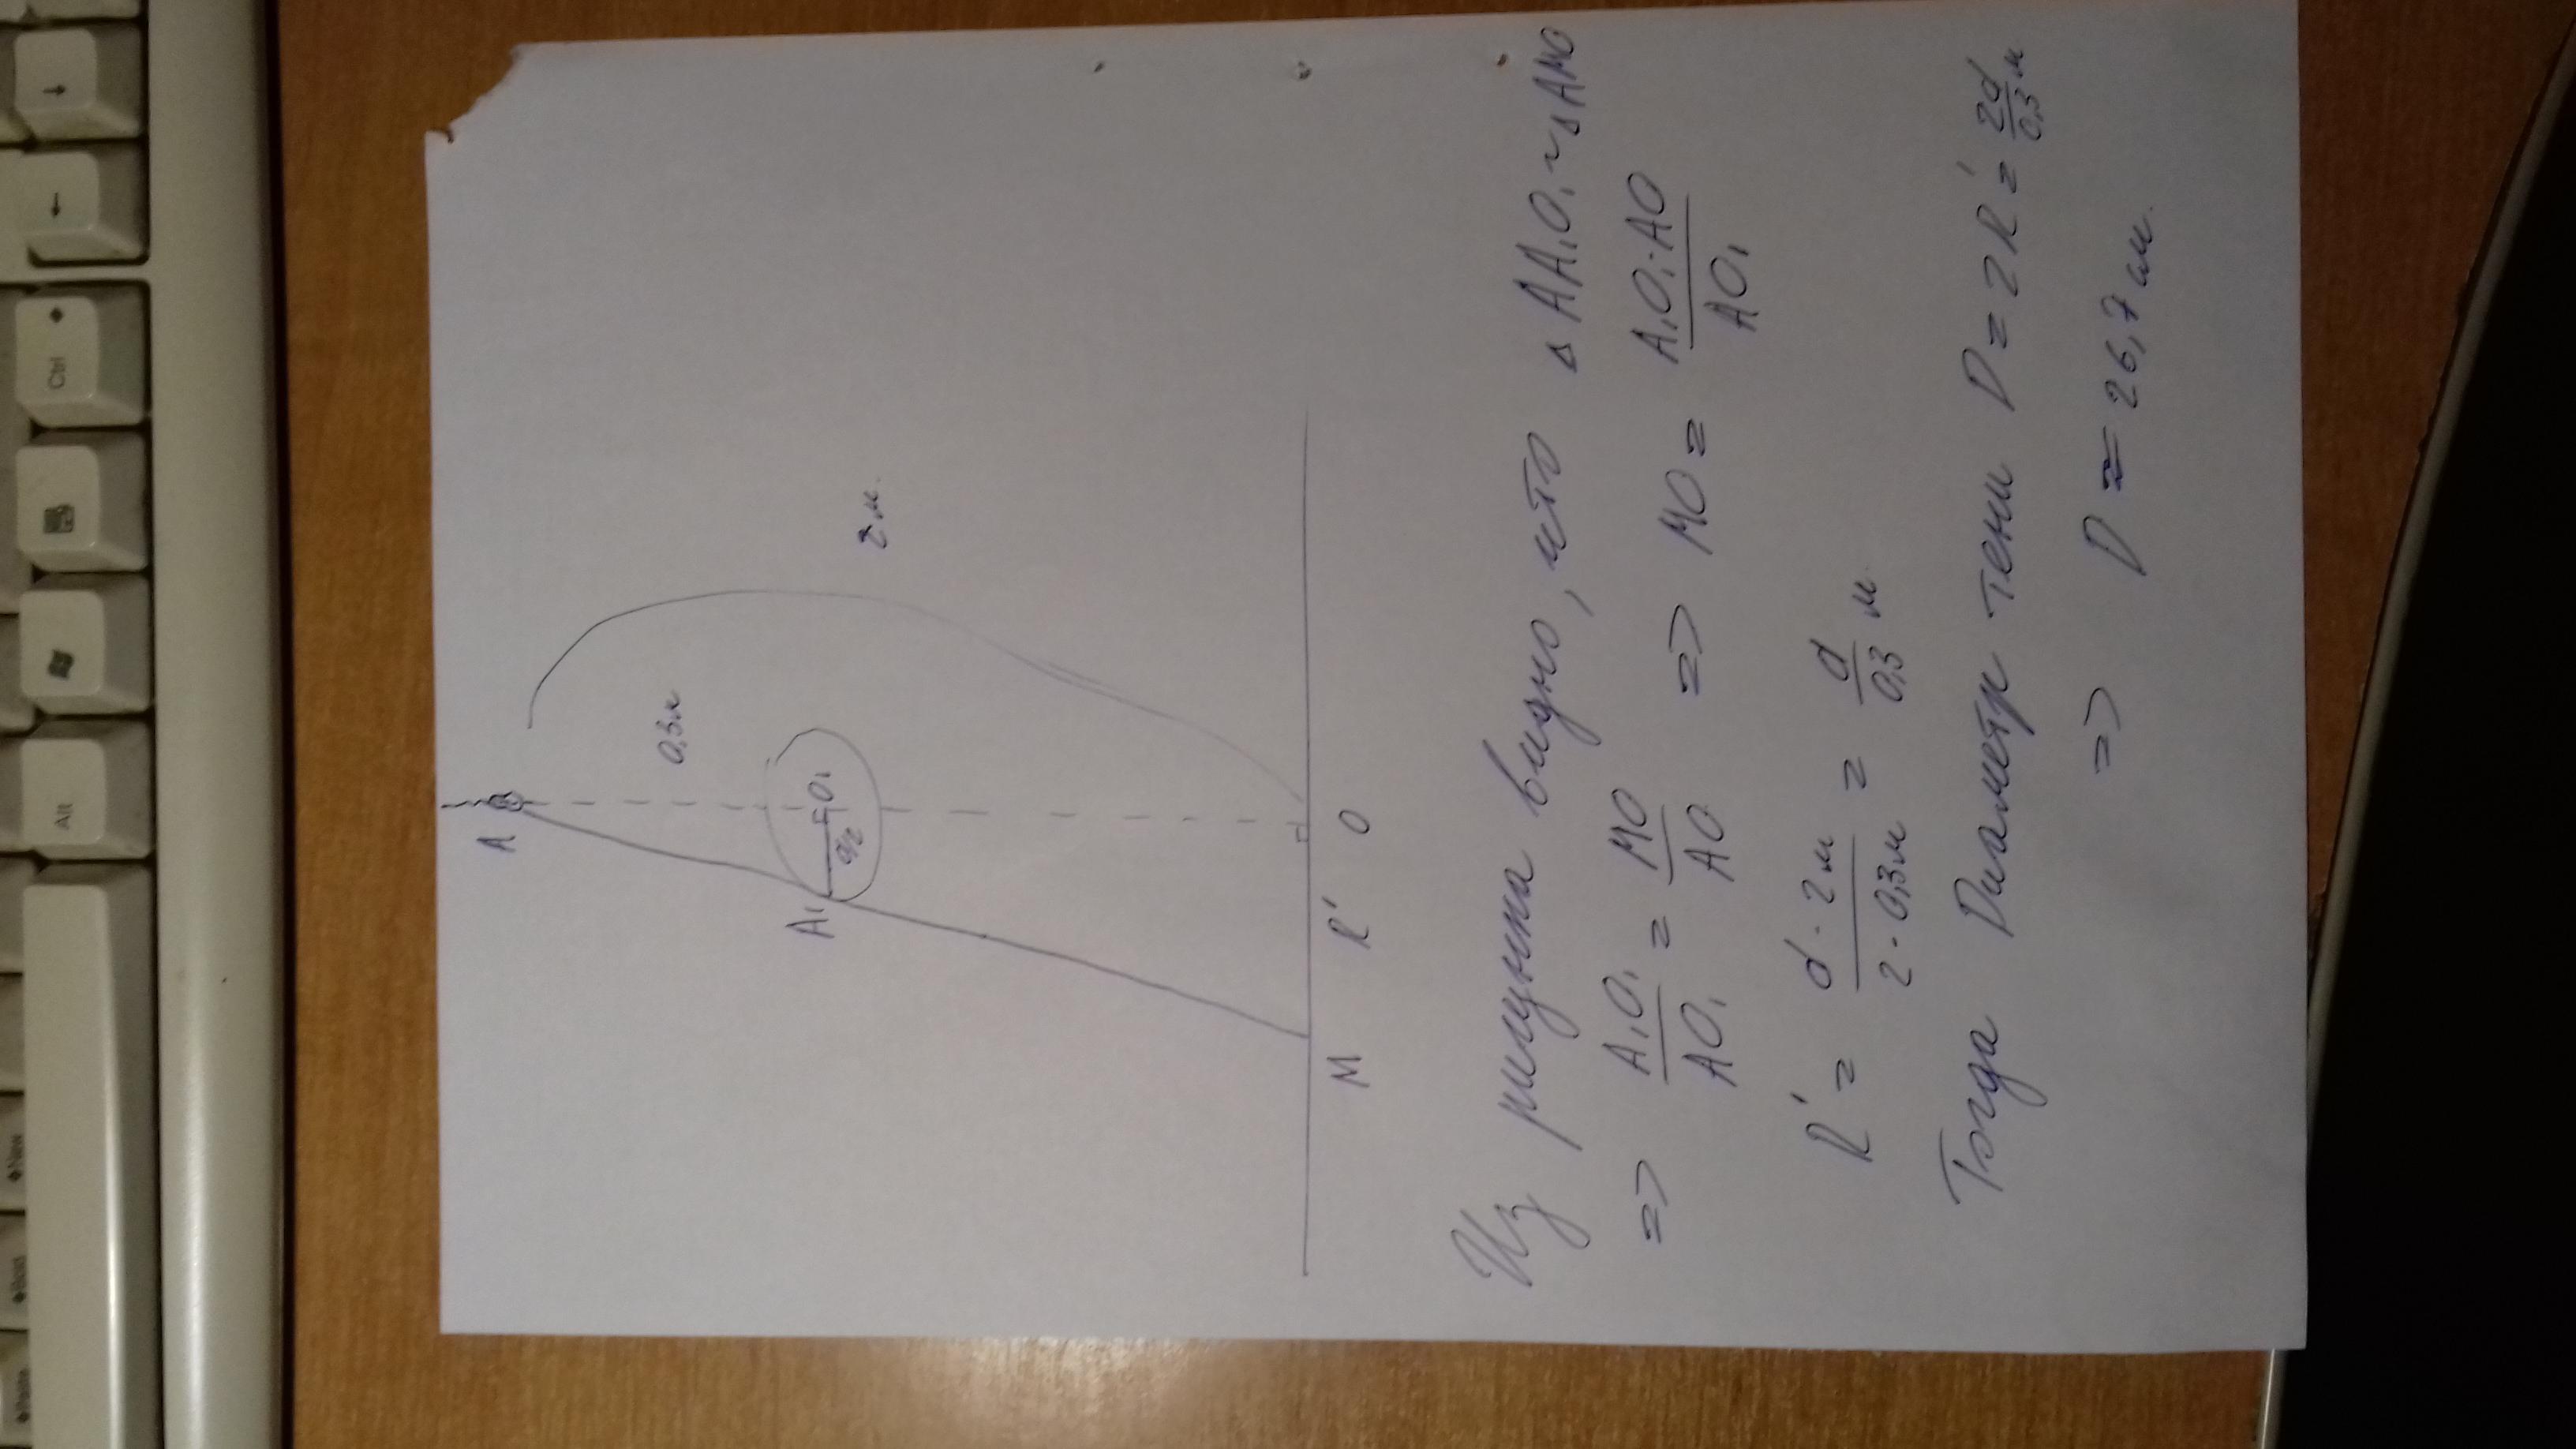 A
0,3м
2 м.
A₁
d/2
O₁
M R' O
Из рисунка видно, что Δ AA₁O₁ ~ Δ AMO
=> A₁O₁/AO₁ = MO/AO => MO = A₁O₁·AO/AO₁
R' = d · 2м/2 · 0,3м = d/0,3 м
Тогда Диаметр тени D = 2R' = 2d/0,3 м
=> D ≈ 26,7 см.
Alt
Ctrl
←
↓